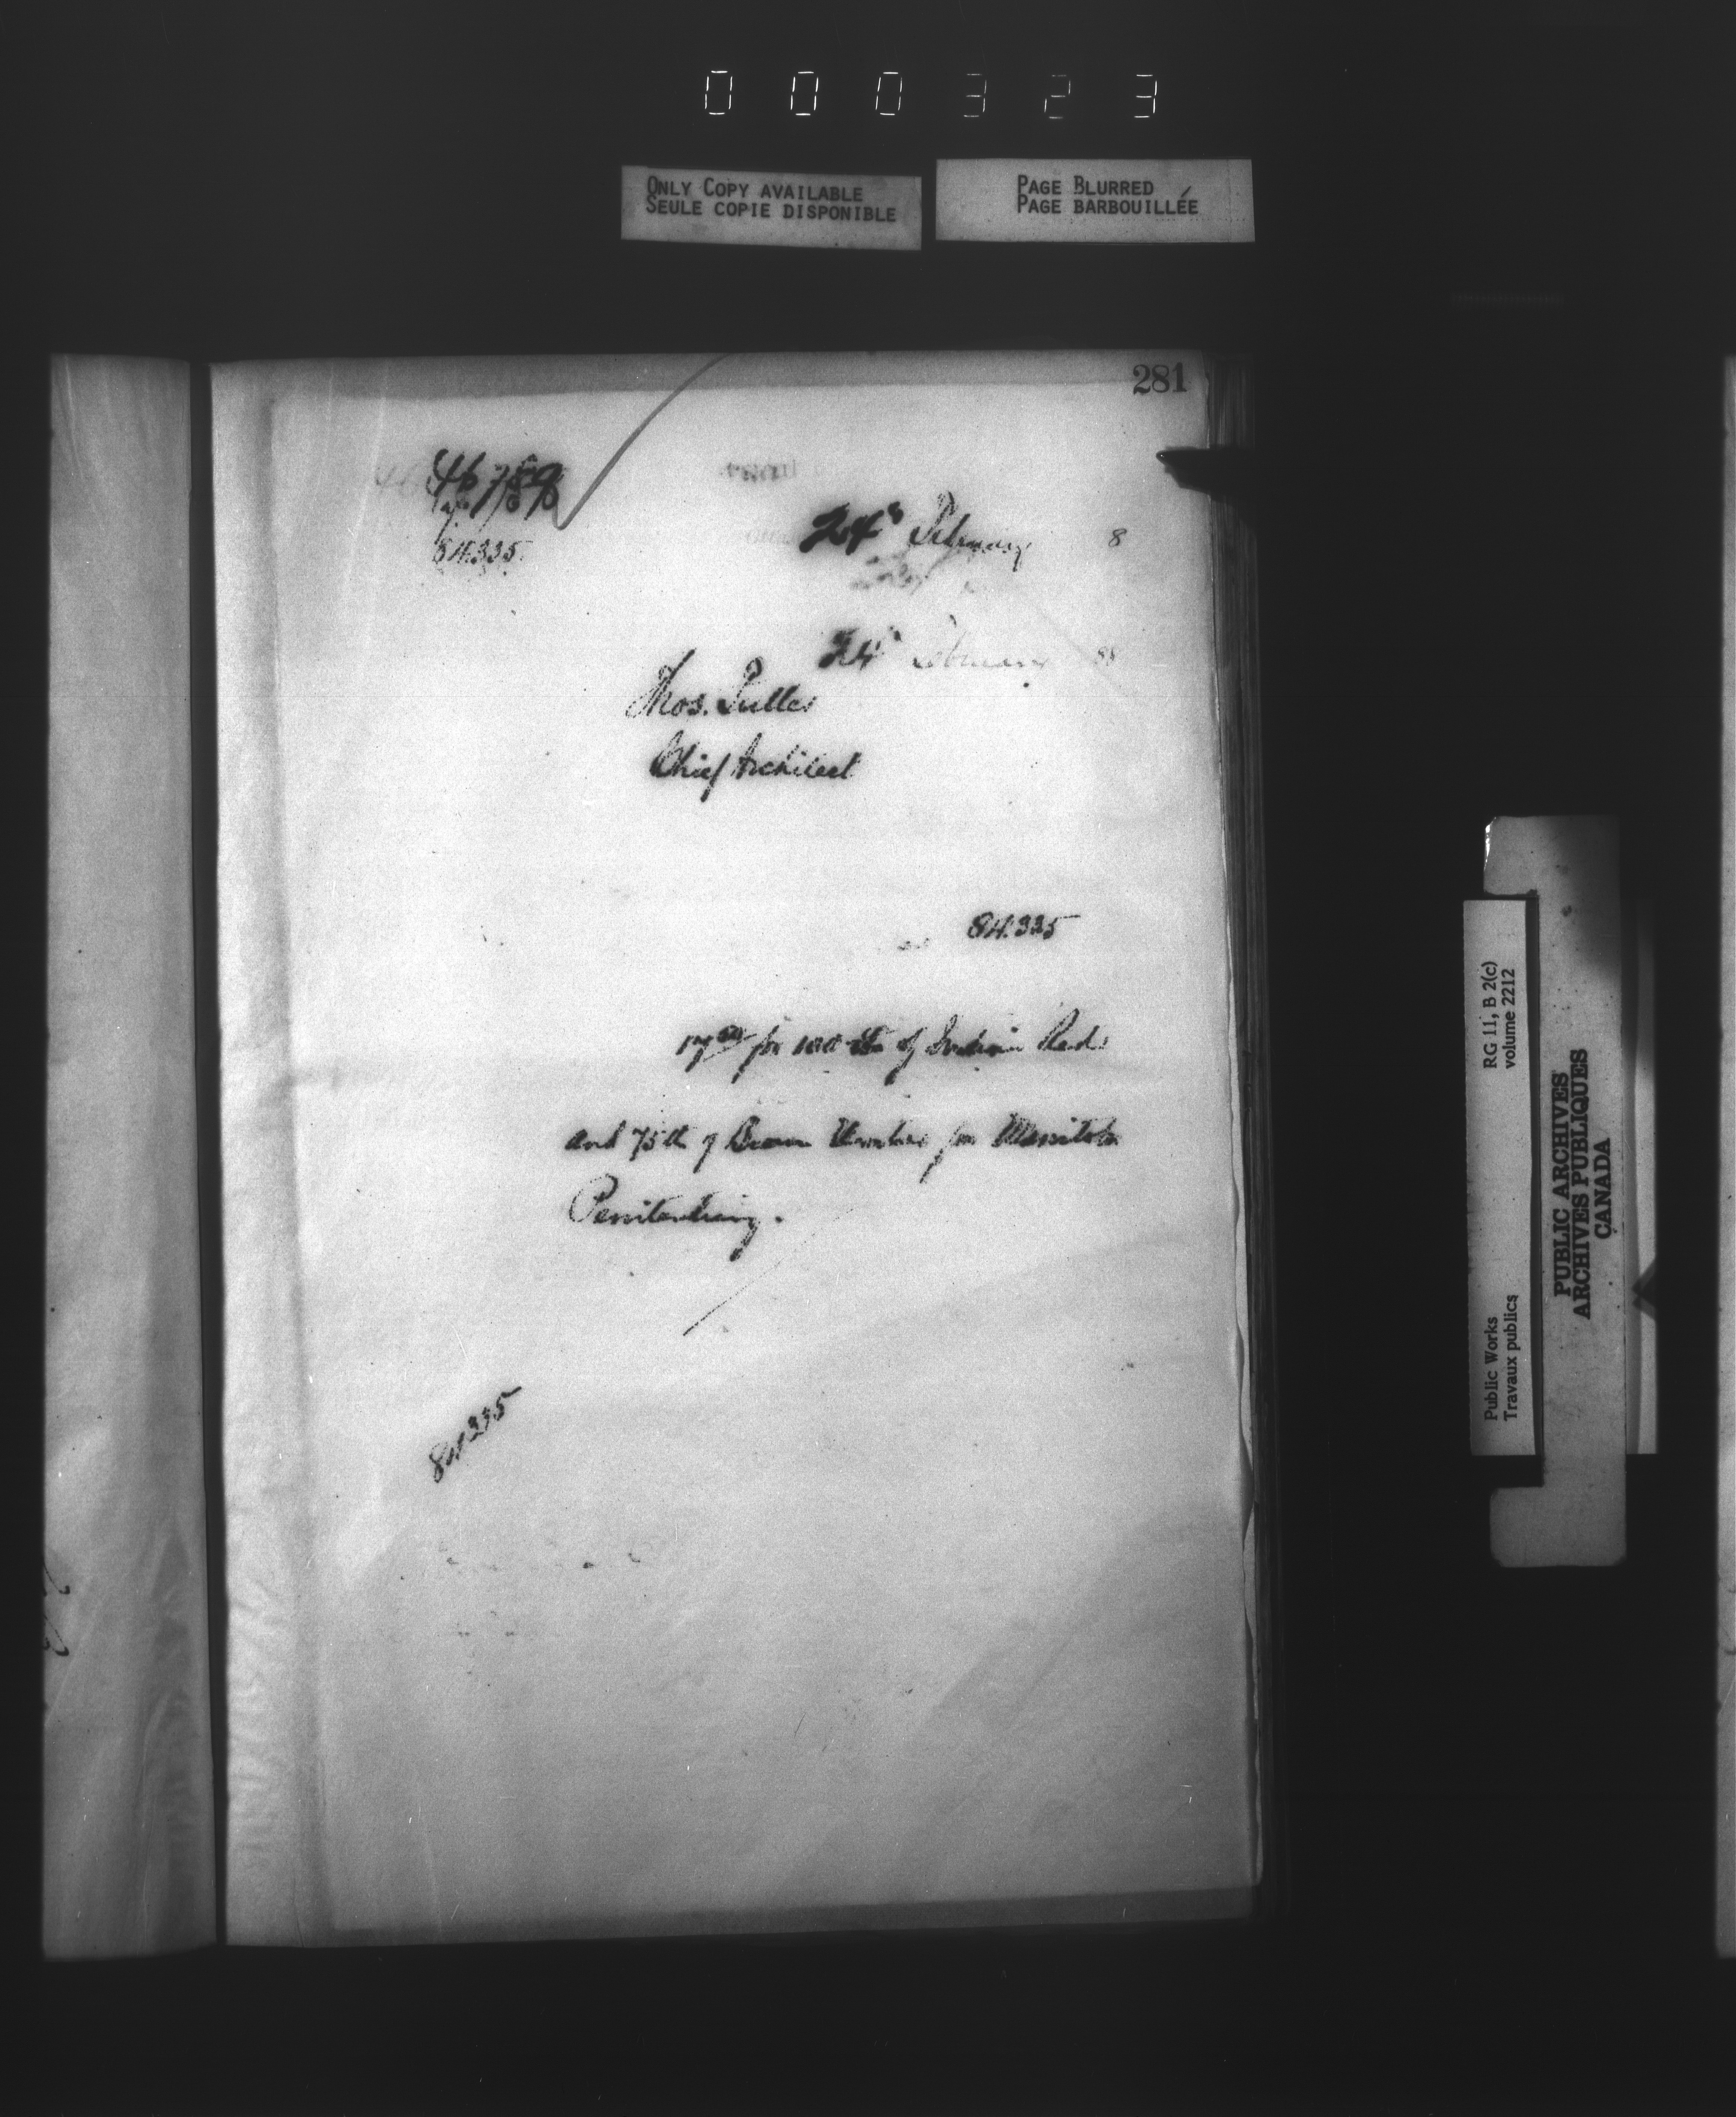 000323
ONLY COPY AVAILABLE
SEULE COPIE DISPONIBLE
PAGE BLURRED
PAGE BARBOUILLÉE
281
46789
84335
24th February 8
24th February 88
Thos. Fuller
Chief Architect
84.335
17.50 for 100 lb of Indian Red
and 75 lb of Brown Umber for Manitoba
Penitentiary.
84335
RG 11, B 2(c)
volume 2212
Public Works
Travaux publics
PUBLIC ARCHIVES
ARCHIVES PUBLIQUES
CANADA